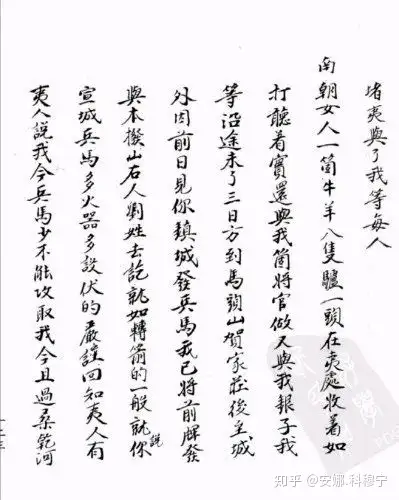 堵夷與了我等每人
南朝女人一箇牛羊八隻驢一頭在夷處收着如
打聽着實還與我箇將官做又與我報子我
等沿途来了三日方到馬頭山賀家莊後至城
外因前日見你鎮城發兵馬我已將前牌發
與本撥山右人劉姓去訖就如轉箭的一般就説你
宣城兵馬多火器多設伏的嚴謹回知夷人有
夷人說我今兵馬少不能攻取我今且過桑乾河
知乎 @安娜.科穆宁